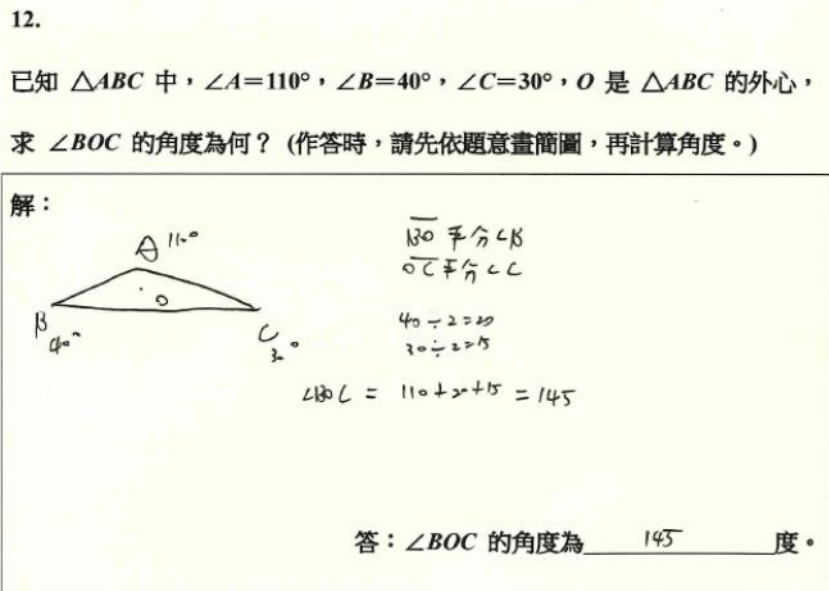 12.
已知 △ABC 中，∠A＝110°，∠B＝40°，∠C＝30°，O 是 △ABC 的外心，
求 ∠BOC 的角度為何？ (作答時，請先依題意畫簡圖，再計算角度。)
解：
A 110°
O
B 40°
C 30°
BO 平分∠B
OC平分∠C
40÷2=20
30÷2=15
∠BOC = 110+20+15 = 145
答：∠BOC 的角度為 145 度。